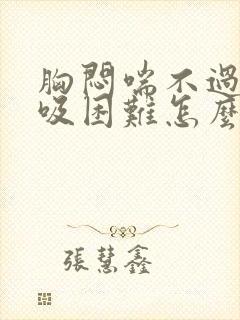 胸悶喘不過
吸困難怎麼
張慧鑫